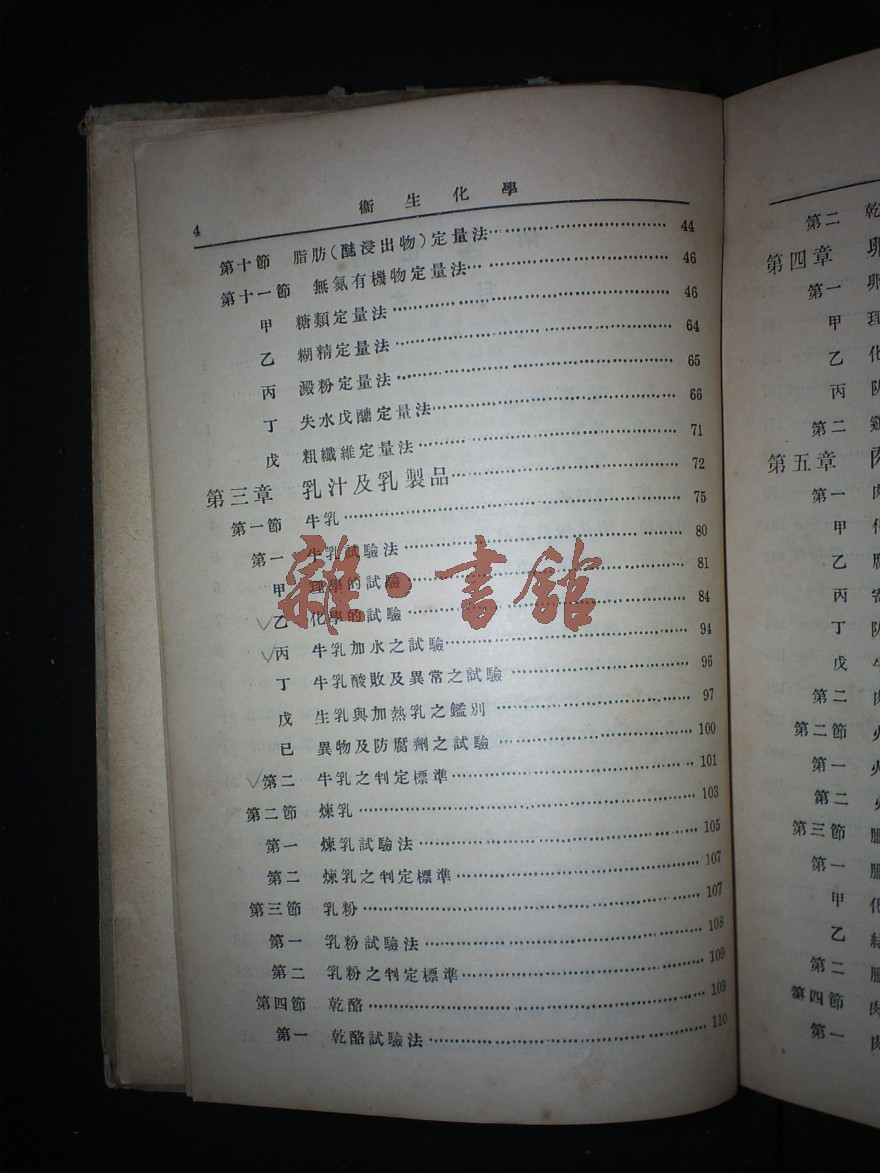 4 衞生化學
第十節 脂肪(醚浸出物)定量法 44
第十一節 無氮有機物定量法 46
甲 糖類定量法 46
乙 糊精定量法 64
丙 澱粉定量法 65
丁 失水戊醣定量法 66
戊 粗纖維定量法 71
第三章 乳汁及乳製品 72
第一節 牛乳 75
第一 牛乳試驗法 80
甲 理學的試驗 81
乙 化學的試驗 84
丙 牛乳加水之試驗 94
丁 牛乳酸敗及異常之試驗 96
戊 生乳與加熱乳之鑑別 97
已 異物及防腐劑之試驗 100
第二 牛乳之判定標準 101
第二節 煉乳 103
第一 煉乳試驗法 105
第二 煉乳之判定標準 107
第三節 乳粉 107
第一 乳粉試驗法 108
第二 乳粉之判定標準 109
第四節 乾酪 109
第一 乾酪試驗法 110
雜·書館
第二 乾
第四章 卵
第一 卵
甲 理
乙 化
丙 防
第二 鷄
第五章 肉
第一 肉
甲 化
乙 腐
丙 寄
丁 防
戊
第二 肉
第二節 火
第一 火
第二 火
第三節 腸
第一 腸
甲 化
乙 結
第二 腸
第四節 肉
第一 肉